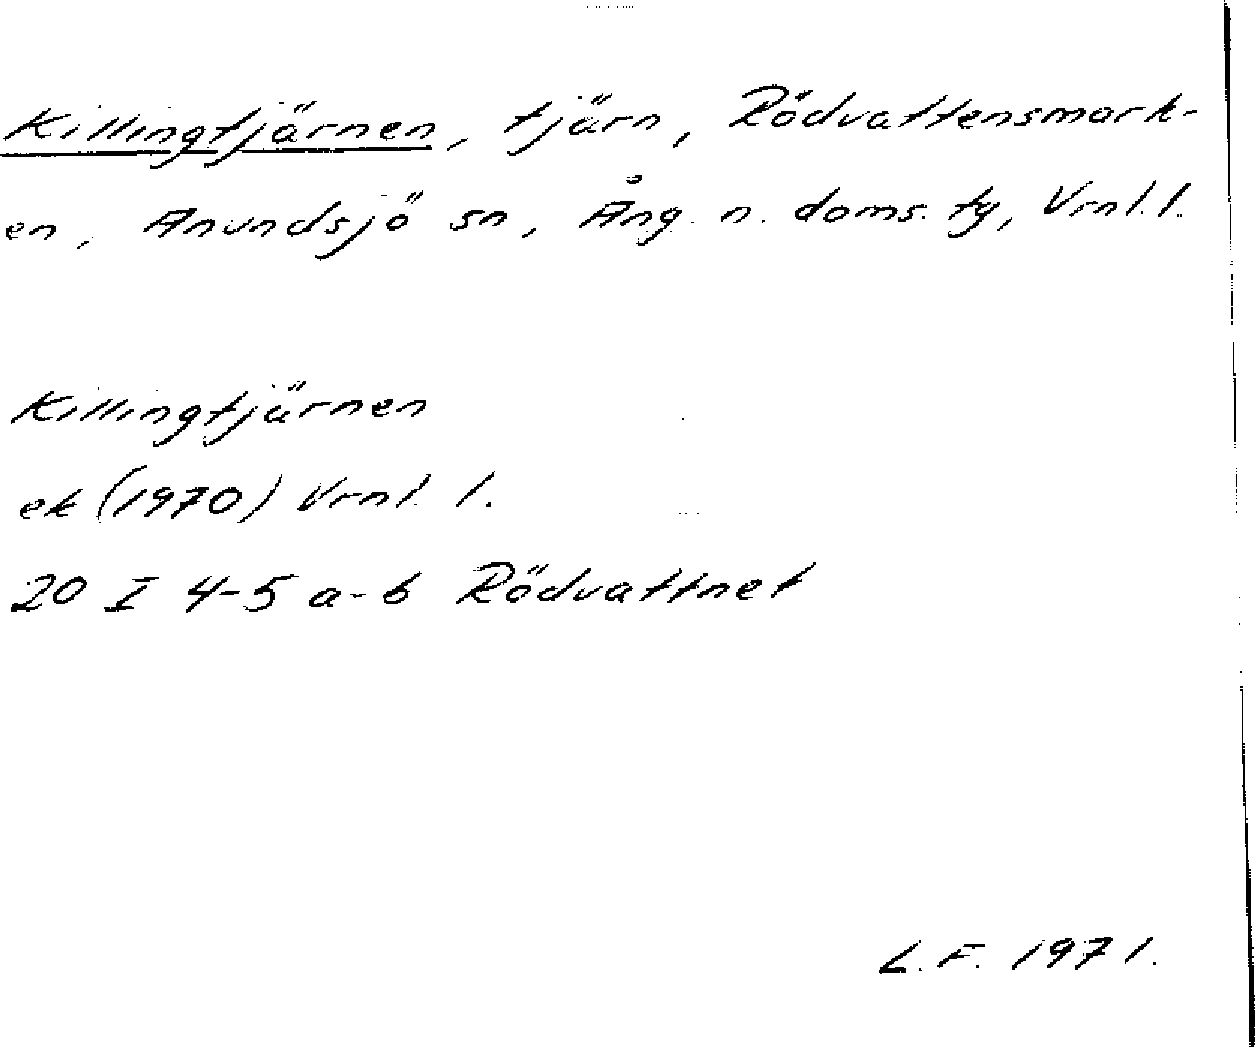 Killingtjärnen, tjärn, Rödvattensmark-
en, Anundsjö sn, Ång. n. doms. tg, Vrnl. l.
Killingtjärnen
ek (1970) Vrnl. l.
20 I 4-5 a-b Rödvattnet
L.F. 1971.